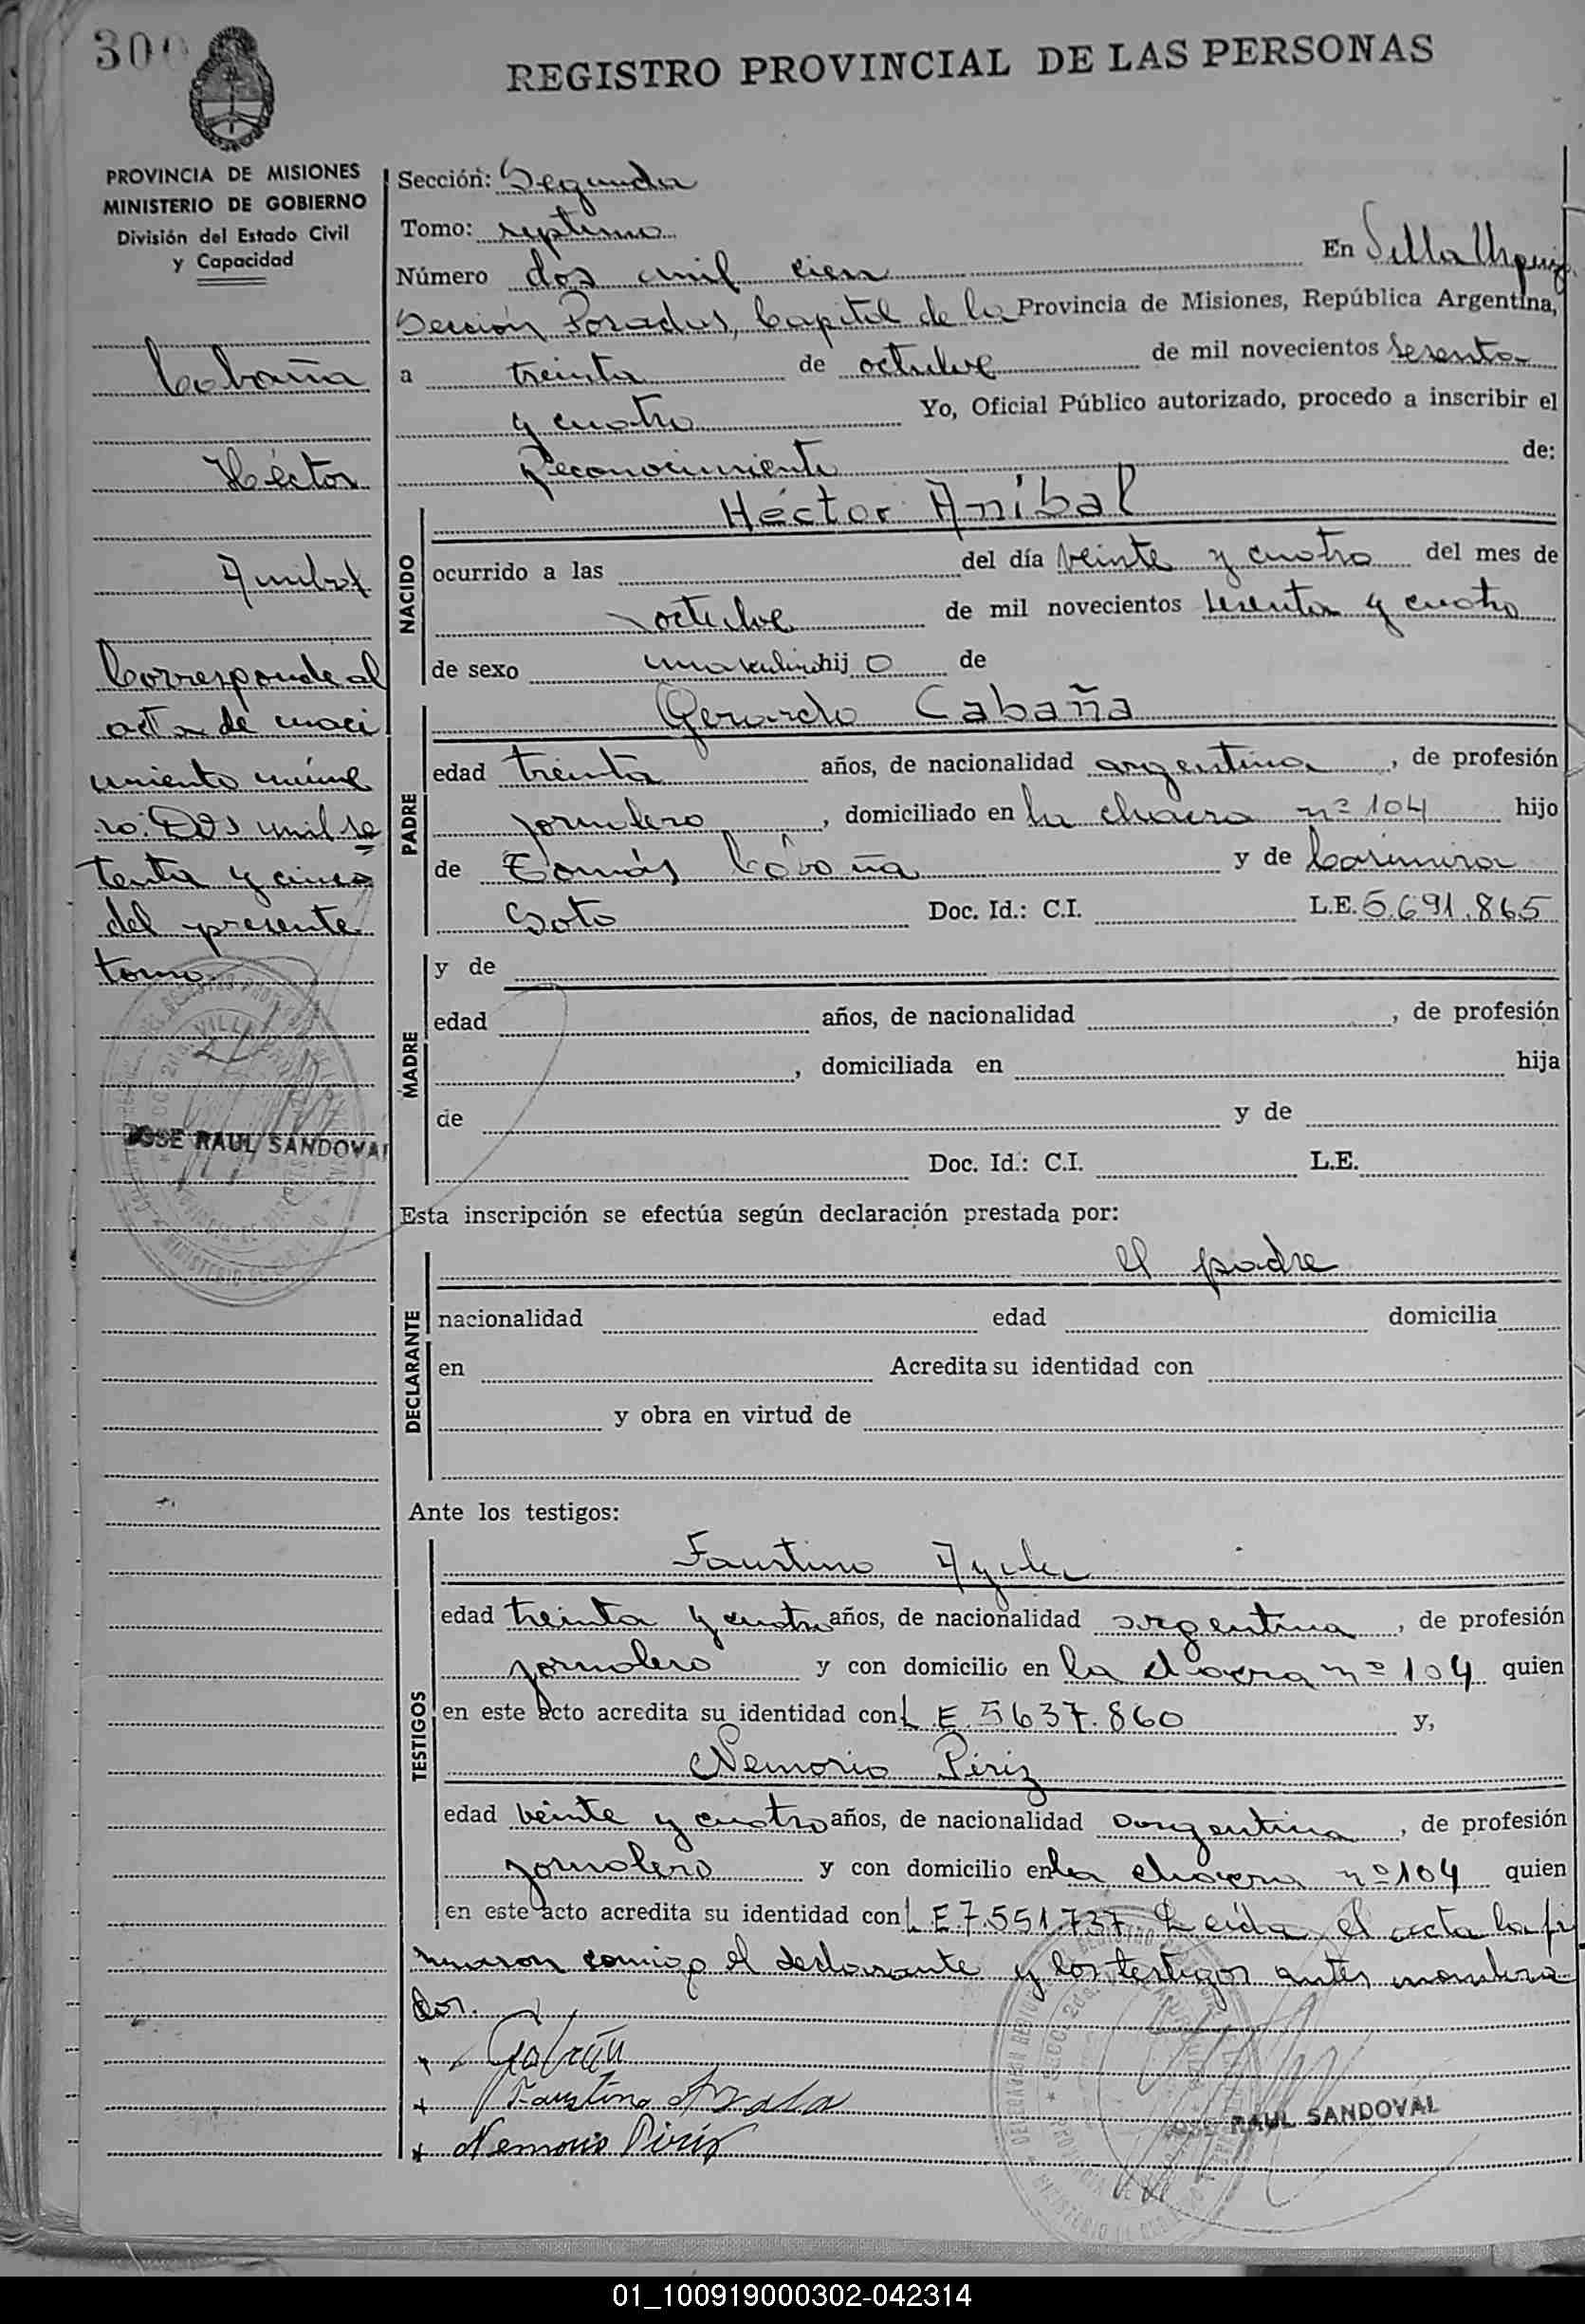 300
REGISTRO PROVINCIAL DE LAS PERSONAS
PROVINCIA DE MISIONES
MINISTERIO DE GOBIERNO
División del Estado Civil
y Capacidad
Cabaña
Héctor
Anibal
Corresponde al
acta de naci
miento núme
ro: Dos mil se
tenta y cinco
del presente
tomo.
JOSE RAUL SANDOVAL
Sección: Segunda
Tomo: septimo
Número dos mil cien En Villa Urquiza
Sección Posadas, Capital de la Provincia de Misiones, República Argentina,
a treinta de octubre de mil novecientos sesenta
y cuatro Yo, Oficial Público autorizado, procedo a inscribir el
Reconocimiento de:
NACIDO
Héctor Aníbal
ocurrido a las del día veinte y cuatro del mes de
octubre de mil novecientos sesenta y cuatro
de sexo masculino hijo de
PADRE
Gerardo Cabaña
edad treinta años, de nacionalidad argentina, de profesión
jornalero, domiciliado en la chacra nº 104 hijo
de Tomás Cabaña y de Casimira
Soto Doc. Id.: C.I. L.E. 5.691.865
MADRE
y de
edad años, de nacionalidad , de profesión
, domiciliada en hija
de y de
Doc. Id.: C.I. L.E.
Esta inscripción se efectúa según declaración prestada por:
DECLARANTE
el padre
nacionalidad edad domicilia
en Acredita su identidad con
y obra en virtud de
Ante los testigos:
TESTIGOS
Faustino
edad treinta y cuatro años, de nacionalidad argentina, de profesión
jornalero y con domicilio en la chacra nº 104 quien
en este acto acredita su identidad con L.E. 5637.860 y,
Nemorio Piriz
edad veinte y cuatro años, de nacionalidad argentina, de profesión
jornalero y con domicilio en la chacra nº 104 quien
en este acto acredita su identidad con L.E. 7.551.737. Leída el acta la fir
maron conmigo el declarante y los testigos antes nombra
dos.
Faustino
Nemorio Piriz
JOSE RAUL SANDOVAL
01_100919000302-042314